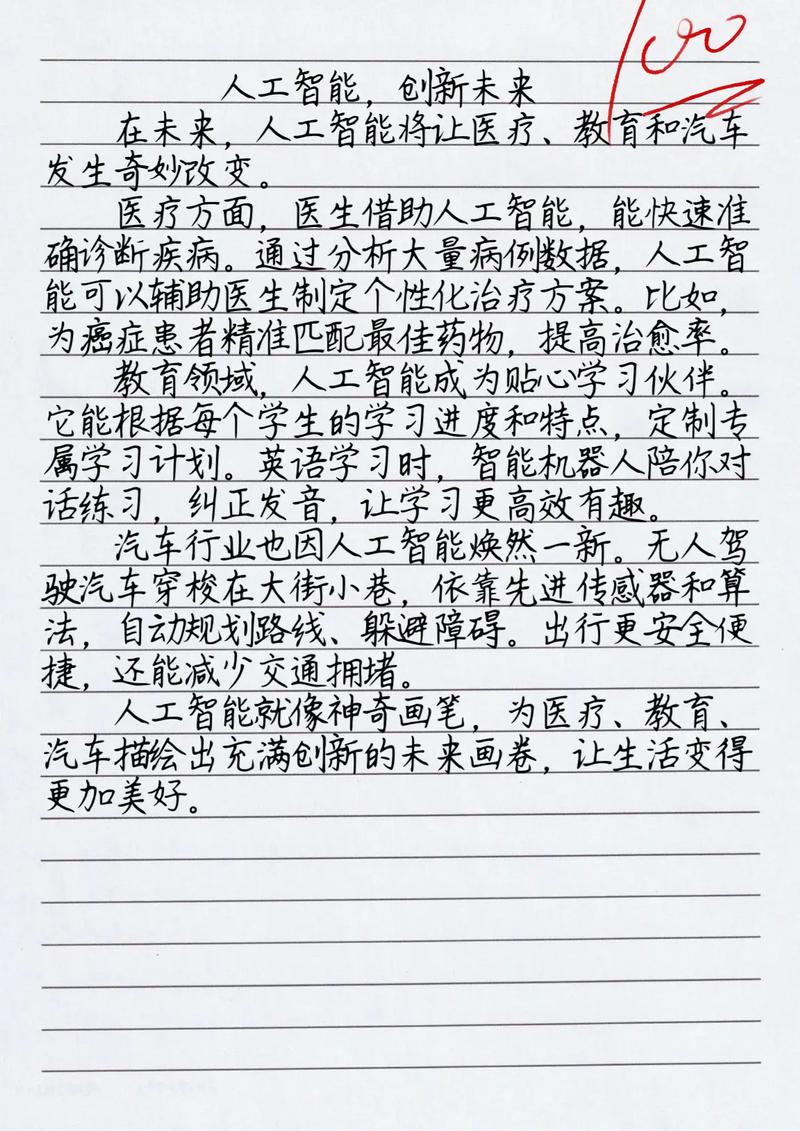 100
人工智能，创新未来
在未来，人工智能将让医疗、教育和汽车
发生奇妙改变。
医疗方面，医生借助人工智能，能快速准
确诊断疾病。通过分析大量病例数据，人工智
能可以辅助医生制定个性化治疗方案。比如，
为癌症患者精准匹配最佳药物，提高治愈率。
教育领域，人工智能成为贴心学习伙伴。
它能根据每个学生的学习进度和特点，定制专
属学习计划。英语学习时，智能机器人陪你对
话练习，纠正发音，让学习更高效有趣。
汽车行业也因人工智能焕然一新。无人驾
驶汽车穿梭在大街小巷，依靠先进传感器和算
法，自动规划路线、躲避障碍。出行更安全便
捷，还能减少交通拥堵。
人工智能就像神奇画笔，为医疗、教育、
汽车描绘出充满创新的未来画卷，让生活变得
更加美好。